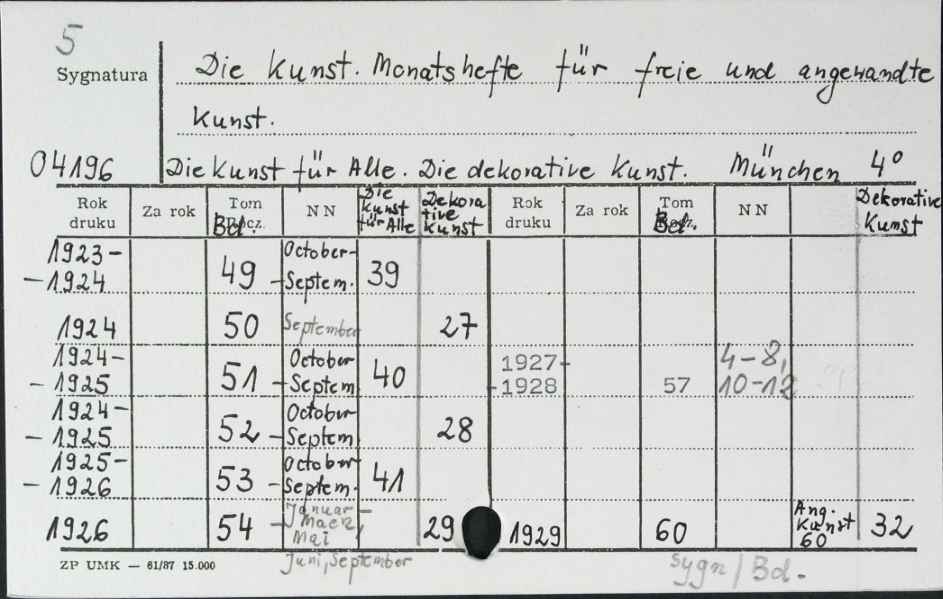 5
Sygnatura
Die Kunst. Monatshefte für freie und angewandte
Kunst.
04196 Die Kunst für Alle. Die dekorative Kunst. München 4°
Rok druku Za rok Tom Bd. NN Die Kunst für Alle Dekorative Kunst Rok druku Za rok Tom Bd. NN Dekorative Kunst
1923-
-1924 49 October-Septem. 39
1924 50 September 27
1924-
-1925 51 October-Septem 40 1927-1928 57 4-8, 10-12
1924-
-1925 52 October-Septem 28
1925-
-1926 53 October-Septem. 41
1926 54 Januar-Maerz, Mai 29 1929 60 Ang. Kunst 60 32
Juni, September
ZP UMK — 61/87 15.000
sygn/Bd.